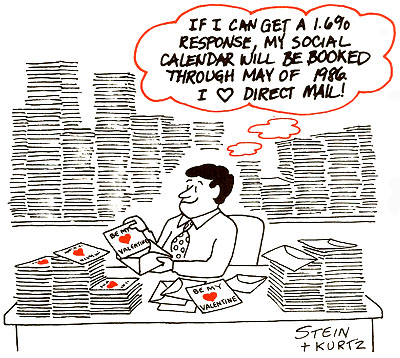 IF I CAN GET A 1.6%
RESPONSE, MY SOCIAL
CALENDAR WILL BE BOOKED
THROUGH MAY OF 1986.
I ♡ DIRECT MAIL!
BE MY
VALENTINE
BE MY
VALENTINE
STEIN
+ KURTZ